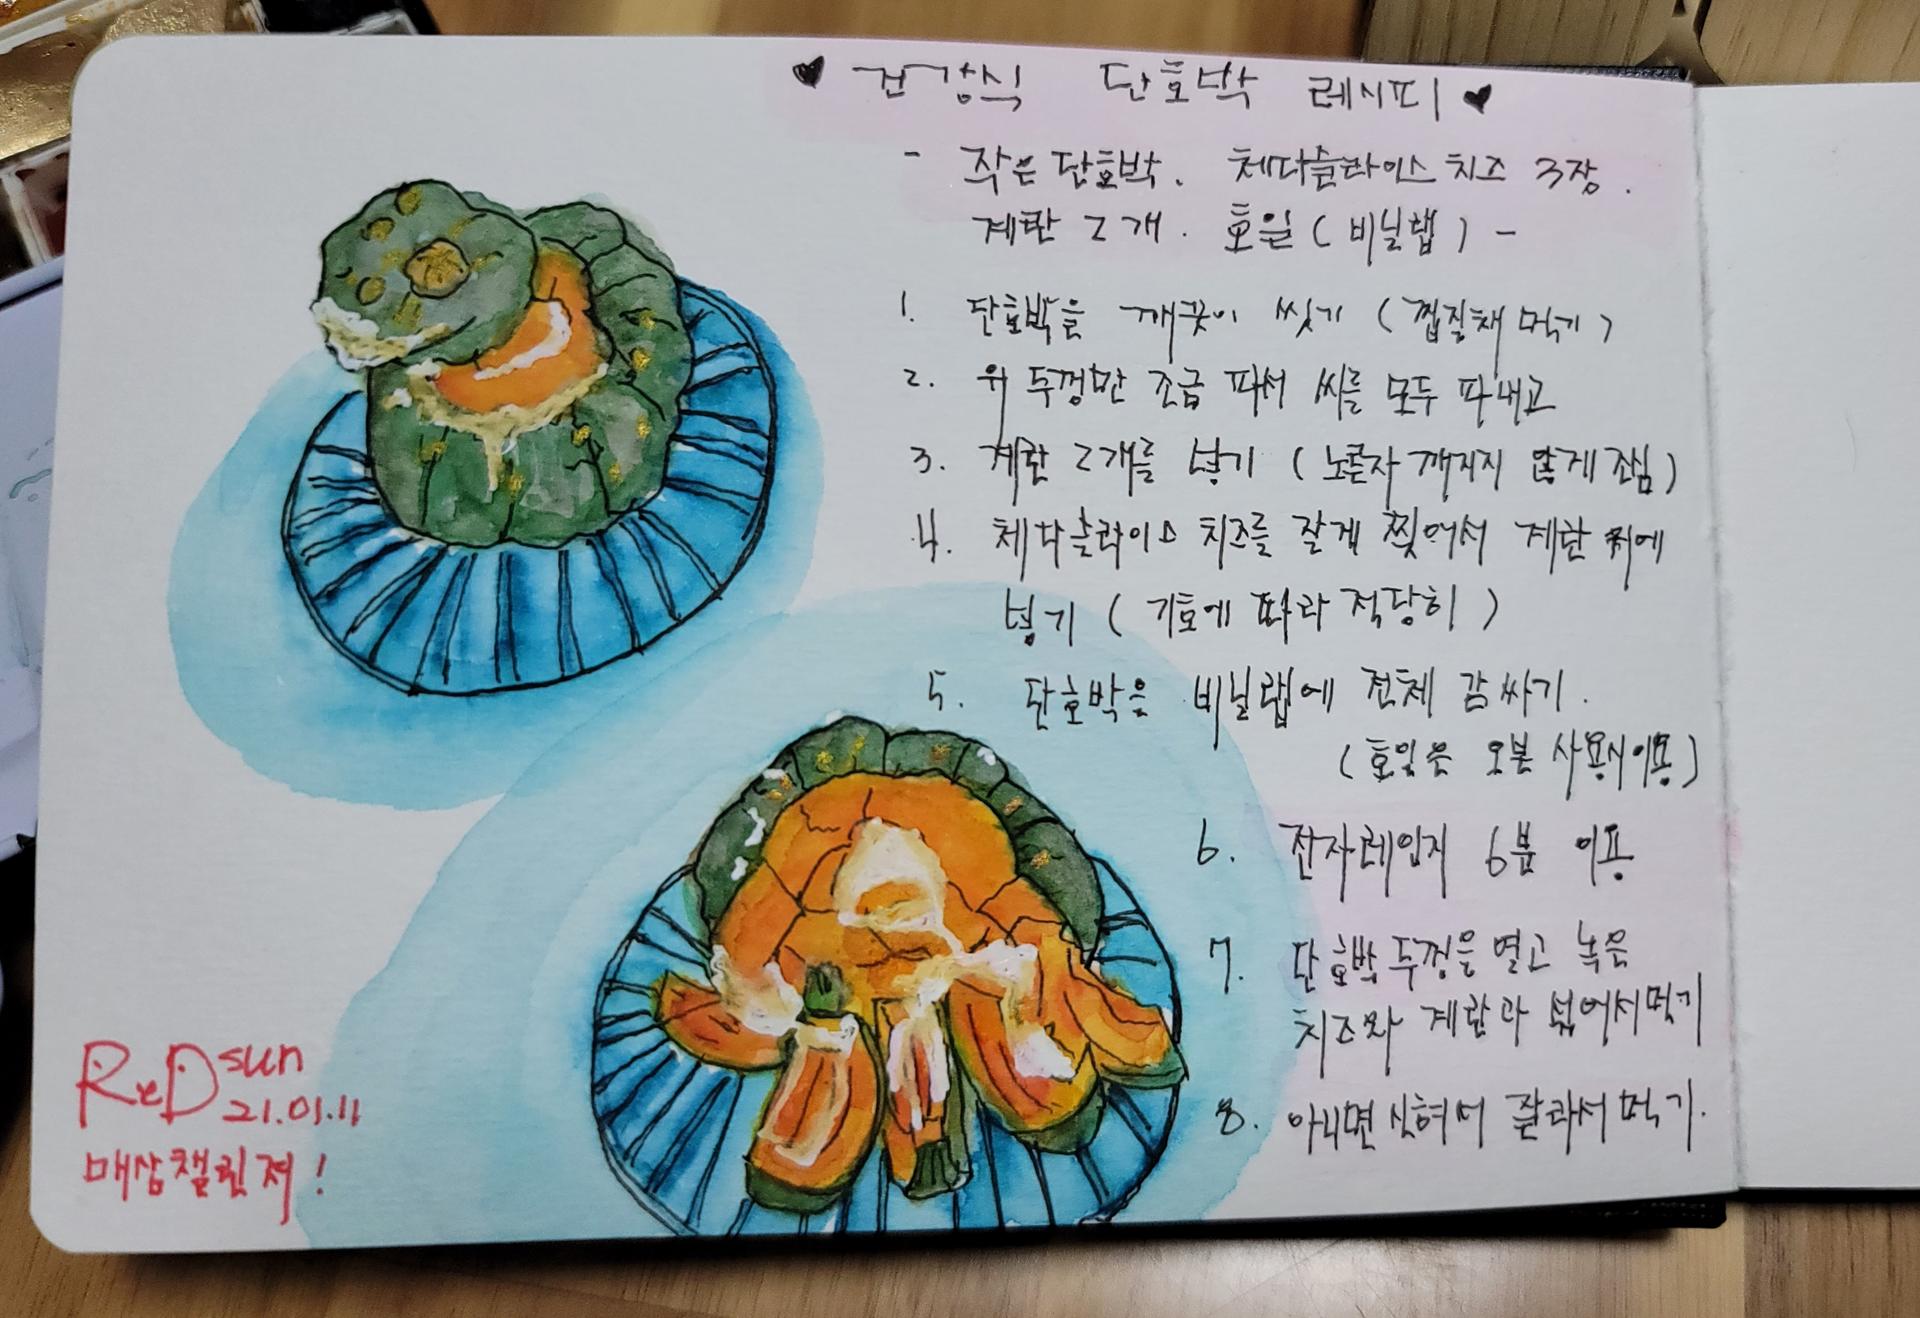 ♥ 건강식 단호박 레시피 ♥
- 작은 단호박. 체다슬라이스 치즈 3장.
계란 2개. 호일 (비닐랩) -
1. 단호박을 깨끗이 씻기 (껍질채 먹기)
2. 위 뚜껑만 조금 파서 씨를 모두 파내고
3. 계란 2개를 넣기 (노른자 깨지지 않게 조심)
4. 체다슬라이스 치즈를 잘게 찢어서 계란 위에
넣기 (기호에 따라 적당히)
5. 단호박을 비닐랩에 전체 감싸기.
(호일은 오븐 사용시 이용)
6. 전자레인지 6분 이용
7. 단호박 뚜껑을 열고 녹은
치즈와 계란과 섞어서 먹기
8. 아니면 식혀서 잘라서 먹기.
ReD sun
21.01.11
매삼챌린저!